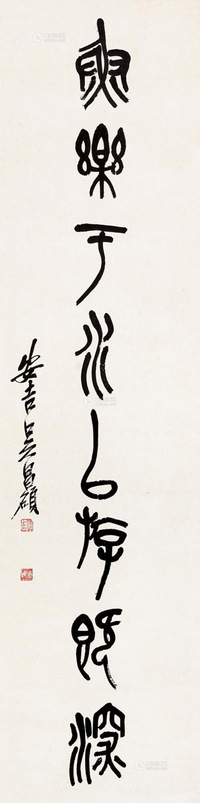 魚樂于水㠯斿既深
安吉吳昌碩